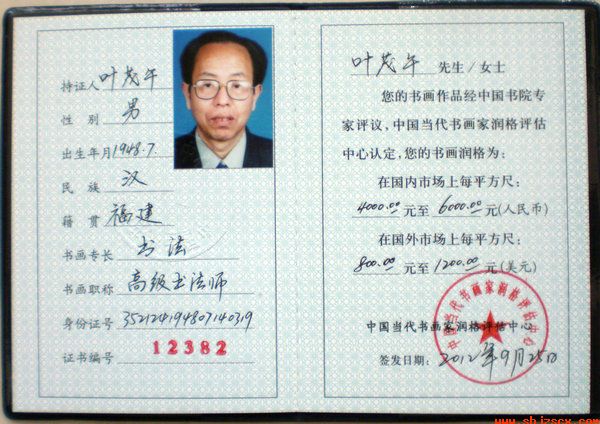 持证人 叶茂午
性别 男
出生年月 1948.7.
民族 汉
籍贯 福建
书画专长 书法
书画职称 高级书法师
身份证号 352124194807140319
证书编号 12382
叶茂午 先生/女士
您的书画作品经中国书院专
家评议,中国当代书画家润格评估
中心认定,您的书画润格为:
在国内市场上每平方尺:
4000.00 元至 6000.00 元(人民币)
在国外市场上每平方尺:
800.00 元至 1200.00 元(美元)
中国当代书画家润格评估中心
中国当代书画家润格评估中心
签发日期: 2012年9月25日
www.shjzscx.com